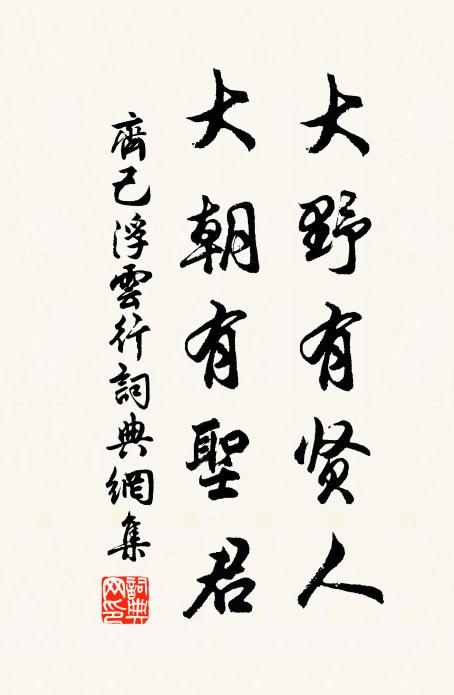 大野有贤人
大朝有聖君
齊己浮雲行詞典網集
詞典
网印